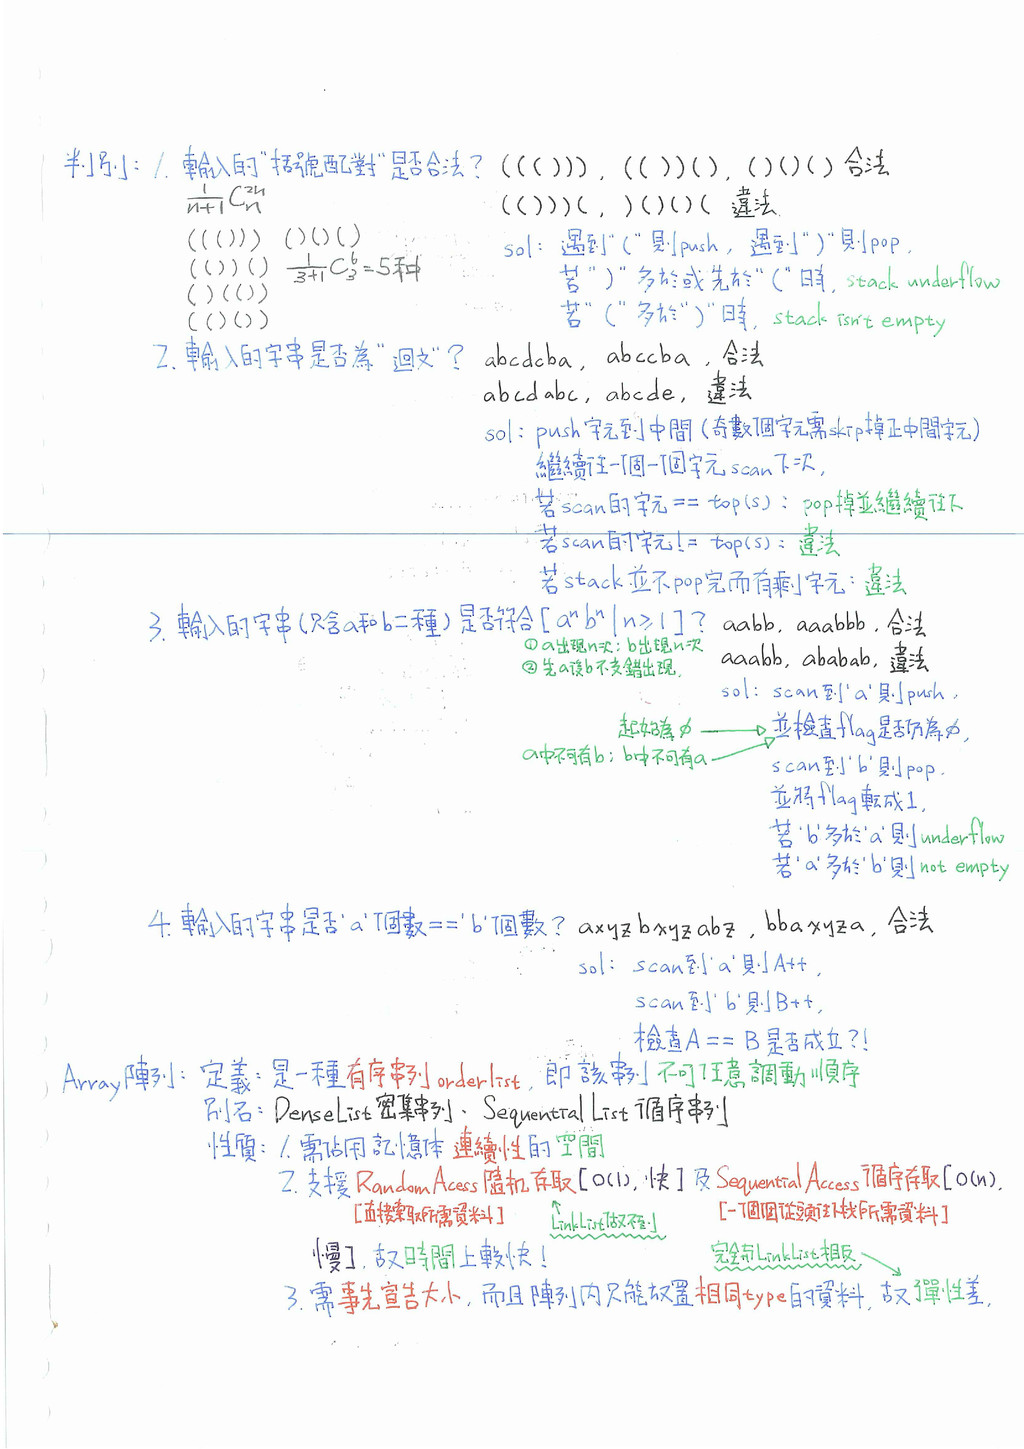 判別：1. 輸入的"括號配對"是否合法？ ((())), (())(), ()()() 合法
1/(n+1) C 2n n
(()))(, )()()( 違法
((())) ()()()
sol: 遇到"("則push, 遇到")"則pop,
(())() 1/(3+1) C 6 3 = 5種
若")"多於或先於"("時, stack underflow
()(())
若"("多於")"時, stack isn't empty
(()())
2. 輸入的字串是否為"迴文"？ abcdcba, abccba, 合法
abcdabc, abcde, 違法
sol: push字元到中間(奇數個字元需skip掉正中間字元)
繼續往一個一個字元scan下次,
若scan的字元==top(s): pop掉並繼續往下
若scan的字元!= top(s): 違法
若stack並不pop完而有剩字元: 違法
3. 輸入的字串(只含a和b二種)是否符合[aⁿbⁿ|n≥1]？ aabb, aaabbb, 合法
①a出現n次;b出現n次
aaabb, ababab, 違法
②先a後b不交錯出現,
sol: scan到'a'則push,
起始為∅ 並檢查flag是否仍為∅,
a中不可有b;b中不可有a
scan到'b'則pop.
並將flag転成1,
若'b'多於'a'則underflow
若'a'多於'b'則not empty
4. 輸入的字串是否'a'個數=='b'個數？ axyzbxyzabz, bbaxyza, 合法
sol: scan到'a'則A++,
scan到'b'則B++,
檢查A == B是否成立?!
Array陣列: 定義: 是一種有序串列orderlist, 即該串列不可任意調動順序
別名: DenseList密集串列、Sequential List循序串列
性質: 1. 需佔用記憶体連續性的空間
2. 支援Random Acess隨机存取[O(1), 快]及Sequential Access循序存取[O(n),
[直接索取所需資料] LinkList做不到 [一個個從頭往下找所需資料]
慢], 故時間上較快! 完全和LinkList相反
3. 需事先宣告大小, 而且陣列內只能放置相同type的資料, 故彈性差,